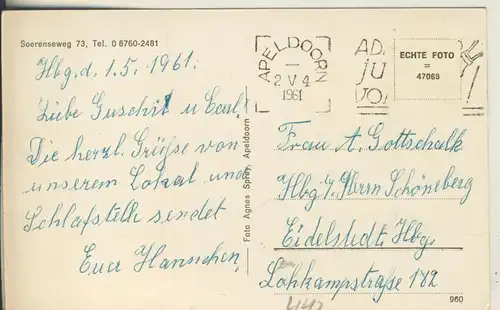 Soerenseweg 73, Tel. 0 6760-2481
Hbg. d. 1.5. 1961.
Liebe Guschit u Carl!
Die herzl. Grüsse von
unserem Lokal und
Schlafstelle sendet
Euer Hannchen,
Foto Agnes Spray, Apeldoorn
APELDOORN
2 V 4
1961
AD
JU
VO
ECHTE FOTO
=
47068
Frau A. Gottschalk
Hbg. Herrn Schöneberg
Eidelstedt, Hbg.
Lohkampstraße 182
442
960